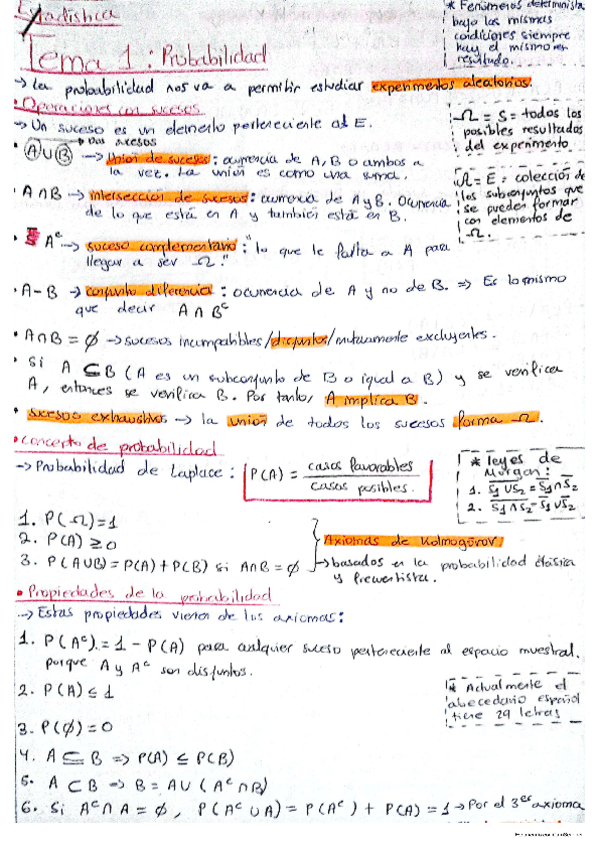 Estadística
Tema 1 : Probabilidad
* Fenómenos determinista
bajo las mismas
condiciones siempre
hay el mismo
resultado.
→ La probabilidad nos va a permitir estudiar experimentos aleatorios.
• Operaciones con sucesos
→ Un suceso es un elemento perteneciente al E.
Ω = S = todos los
posibles resultados
del experimento
→ Dos sucesos
• A∪B → Unión de sucesos : ocurrencia de A, B o ambos a
la vez. La unión es como una suma.
A = E = colección de
los subconjuntos que
se pueden formar
con elementos de
Ω.
• A∩B → intersección de sucesos : ocurrencia de A y B. Ocurrencia
de lo que está en A y también está en B.
• Aᶜ → suceso complementario : "lo que le falta a A para
llegar a ser Ω."
• A-B → conjunto diferencia : ocurrencia de A y no de B. ⇒ Es lo mismo
que decir A∩Bᶜ
• A∩B = ∅ → sucesos incompatibles/disjuntos/mutuamente excluyentes.
• Si A ⊆ B (A es un subconjunto de B o igual a B) y se verifica
A, entonces se verifica B. Por tanto, A implica B.
• sucesos exhaustivos → la unión de todos los sucesos forma Ω.
• Concepto de probabilidad
→ Probabilidad de Laplace : P(A) = casos favorables
casos posibles.
* leyes de
Morgan :
1. S̅₁̅ ̅∪̅ ̅S̅₂̅ = S̅₁ ∩ S̅₂
2. S̅₁̅ ̅∩̅ ̅S̅₂̅ = S̅₁ ∪ S̅₂
1. P(Ω)=1
2. P(A) ≥ 0
3. P(A∪B) = P(A) + P(B) si A∩B = ∅
Axiomas de Kolmogórov
→ basados en la probabilidad clásica
y frecuentista.
• Propiedades de la probabilidad
→ Estas propiedades vienen de los axiomas :
1. P(Aᶜ) = 1 - P(A) para cualquier suceso perteneciente al espacio muestral.
porque A y Aᶜ son disjuntos.
2. P(A) ≤ 1
* Actualmente el
abecedario español
tiene 29 letras
3. P(∅) = 0
4. A ⊆ B ⇒ P(A) ≤ P(B)
5. A ⊂ B → B = A∪(Aᶜ∩B)
6. Si Aᶜ∩A = ∅, P(Aᶜ∪A) = P(Aᶜ) + P(A) = 1 → Por el 3ᵉʳ axioma